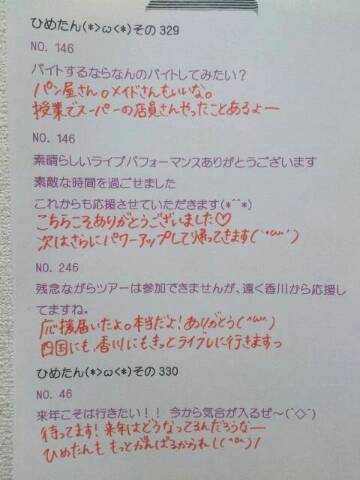 ひめたん(*>ω<*)その329
NO. 146
バイトするならなんのバイトしてみたい？
パン屋さん。メイドさんもいいな。
授業でスーパーの店員さんやったことあるよー
NO. 146
素晴らしいライブパフォーマンスありがとうございます
素敵な時間を過ごせました
これからも応援させていただきます(*^^*)
こちらこそありがとうございました♡
次はさらにパワーアップして帰ってきます(´･ω･`)
NO. 246
残念ながらツアーは参加できませんが、遠く香川から応援し
てますね。
応援届いたよ。本当だよ！ありがとう(´･ω･`)
四国にも香川にもきっとライブしに行きますっ
ひめたん(*>ω<*)その330
NO. 46
来年こそは行きたい！！ 今から気合が入るぜ〜(´◇`)
待ってます！来年はどうなってるんだろうなー
ひめたんも もっとがんばるかられ！(´･ω･`)ノ